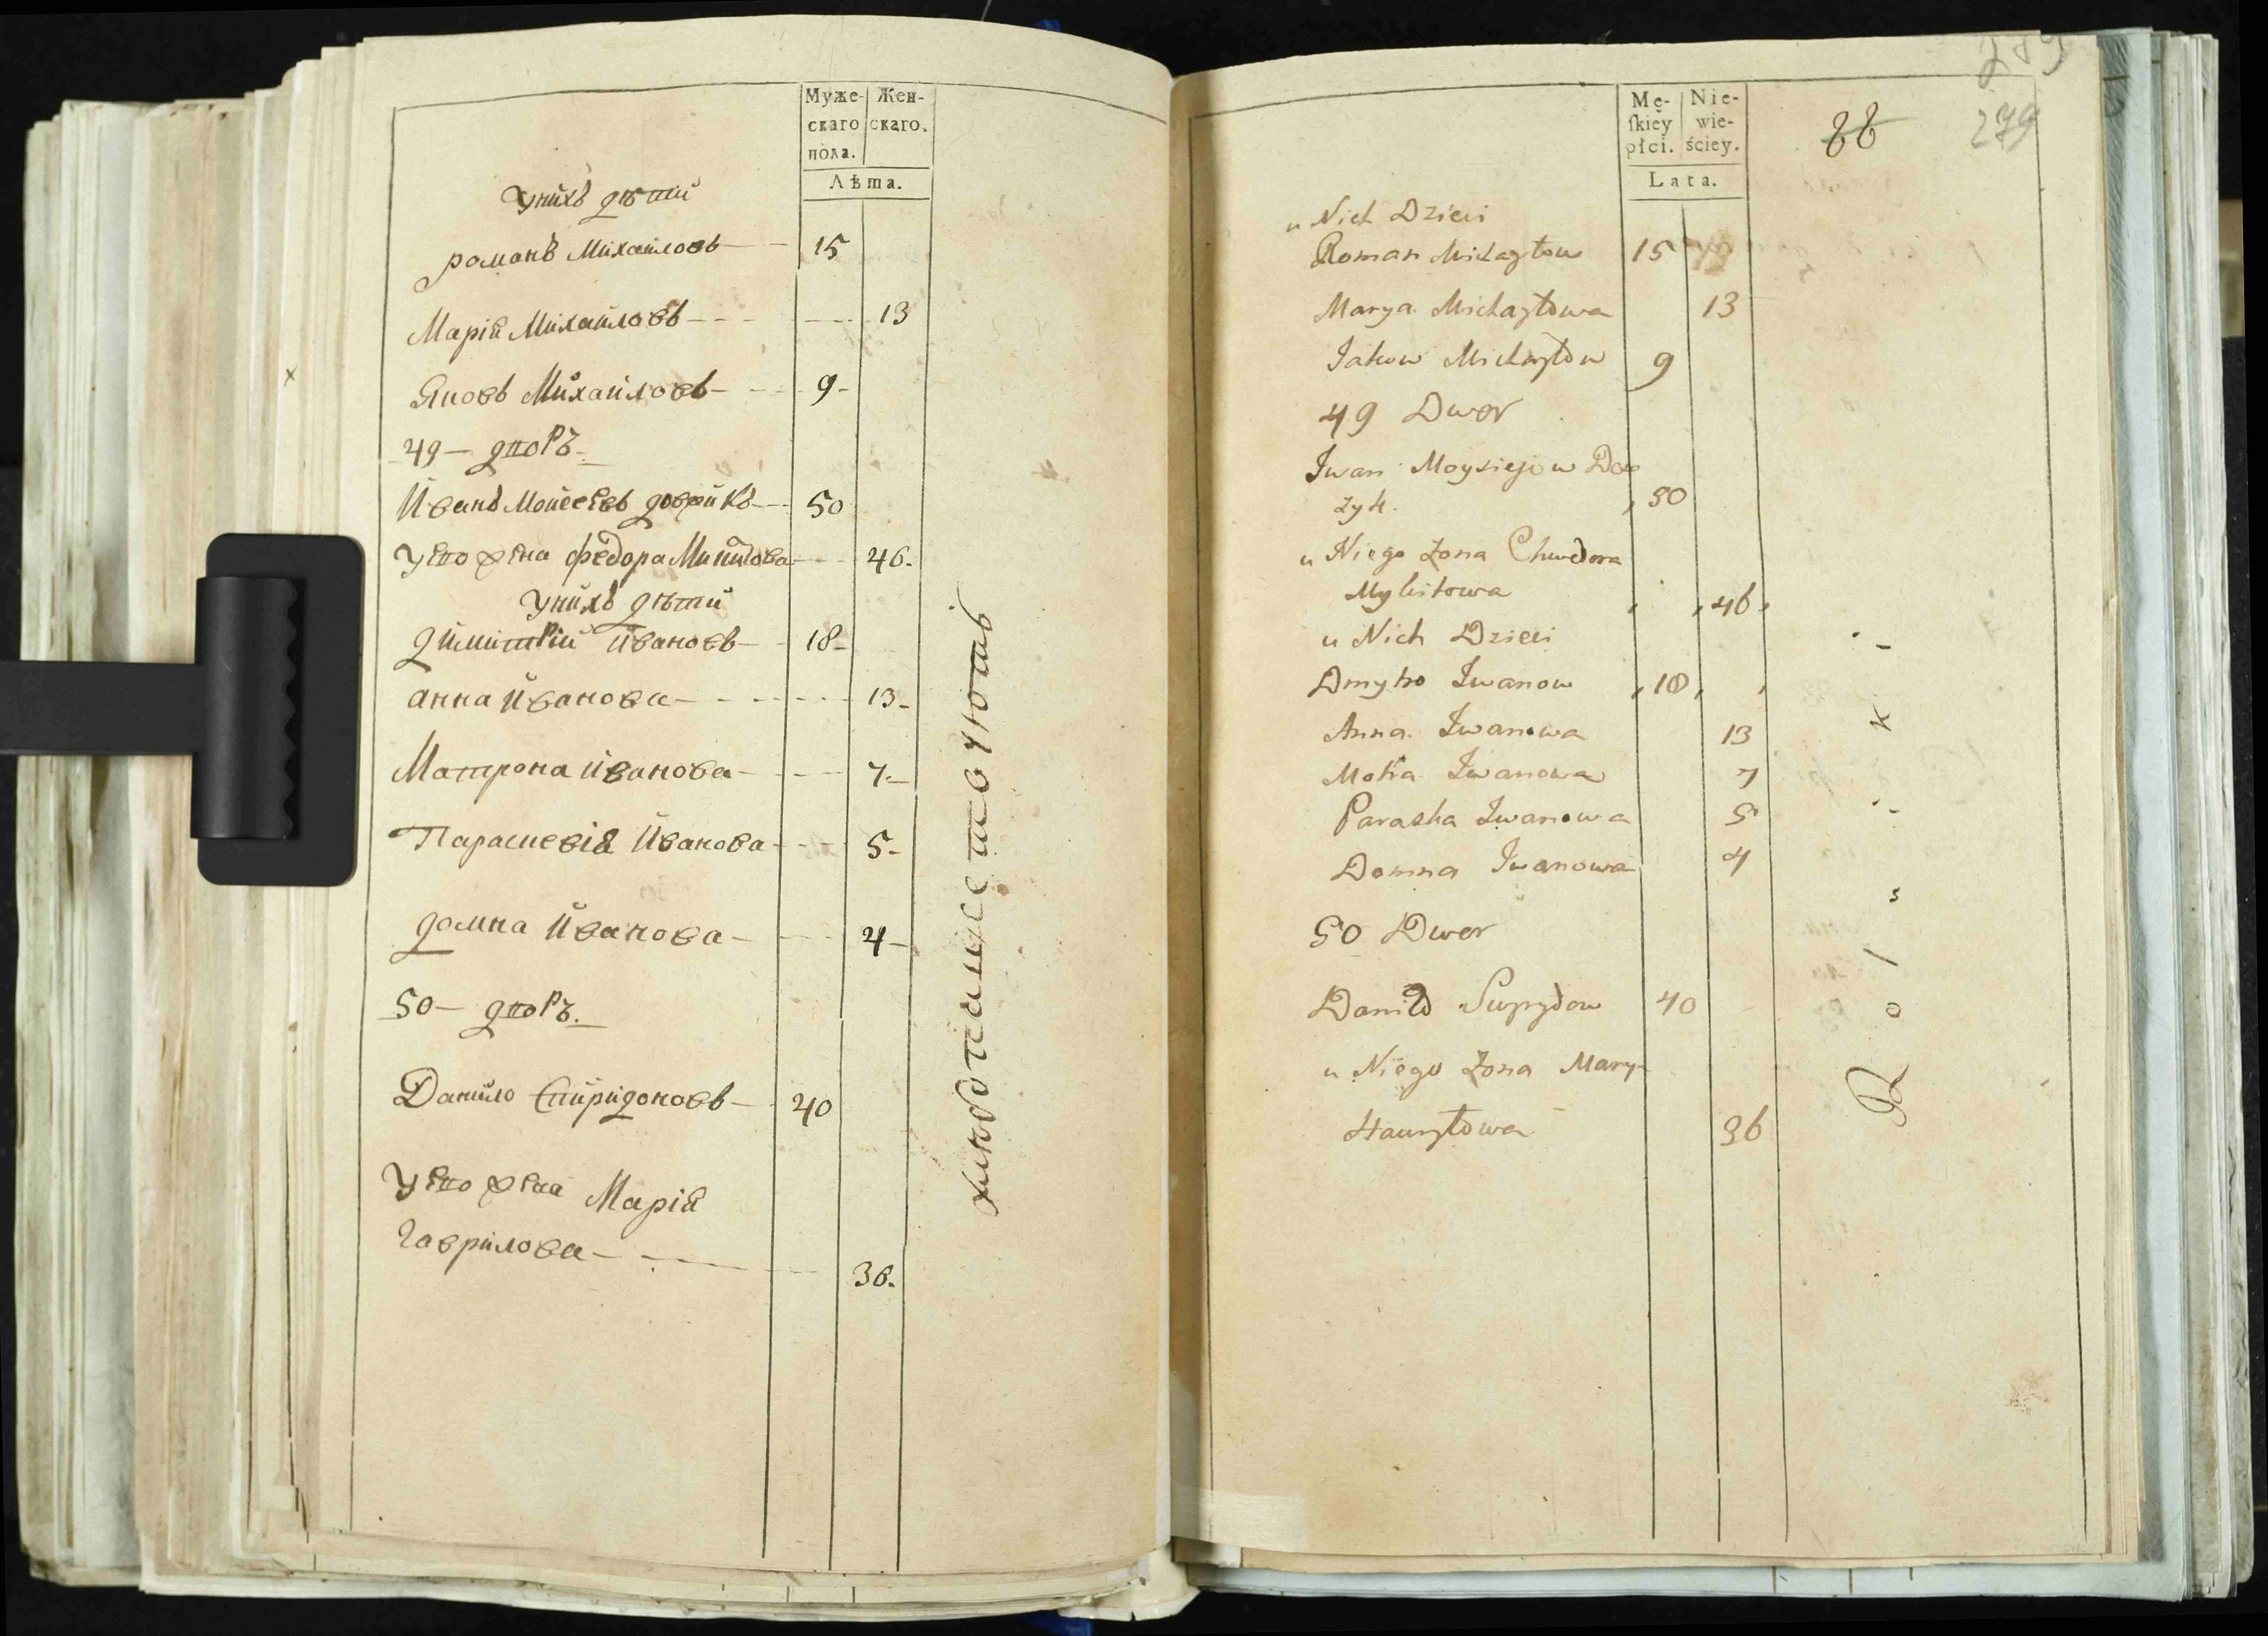 Муже- Жен-
скаго скаго.
пола.
Лѣта.
Унихъ дѣтей
романъ Михайловъ 15
Марія Михайловъ 13
Яковъ Михайловъ 9
49 — дворъ
Иванъ Мойсеевъ 50
Уево жена федора 46
Унихъ дѣтей
димитрій Ивановъ 18
анна Иванова 13
Матрона Иванова 7
Параскевія Иванова 5
домна Иванова 4
50 — дворъ.
Данило Спиридоновъ 40
Уево жена Марія
Гаврилова 36.
Mę- Nie-
ſkiey wie-
płci. ściey.
Lata.
279
u Nich Dzieci
Roman Michayłow 15
Marya Michayłowa 13
Jakow Michayłow 9
49 Dwor
Iwan Moysiejow Dow
zyk. 50
u Niego Zona Chwedora
Mykitowa 46
u Nich Dzieci
Dmytro Iwanow 18
Anna Iwanowa 13
Motra Iwanowa 7
Paraska Iwanowa 5
Domna Iwanowa 4
50 Dwor
Daniło 40
u Niego Zona Mary
Hawryłowa 36